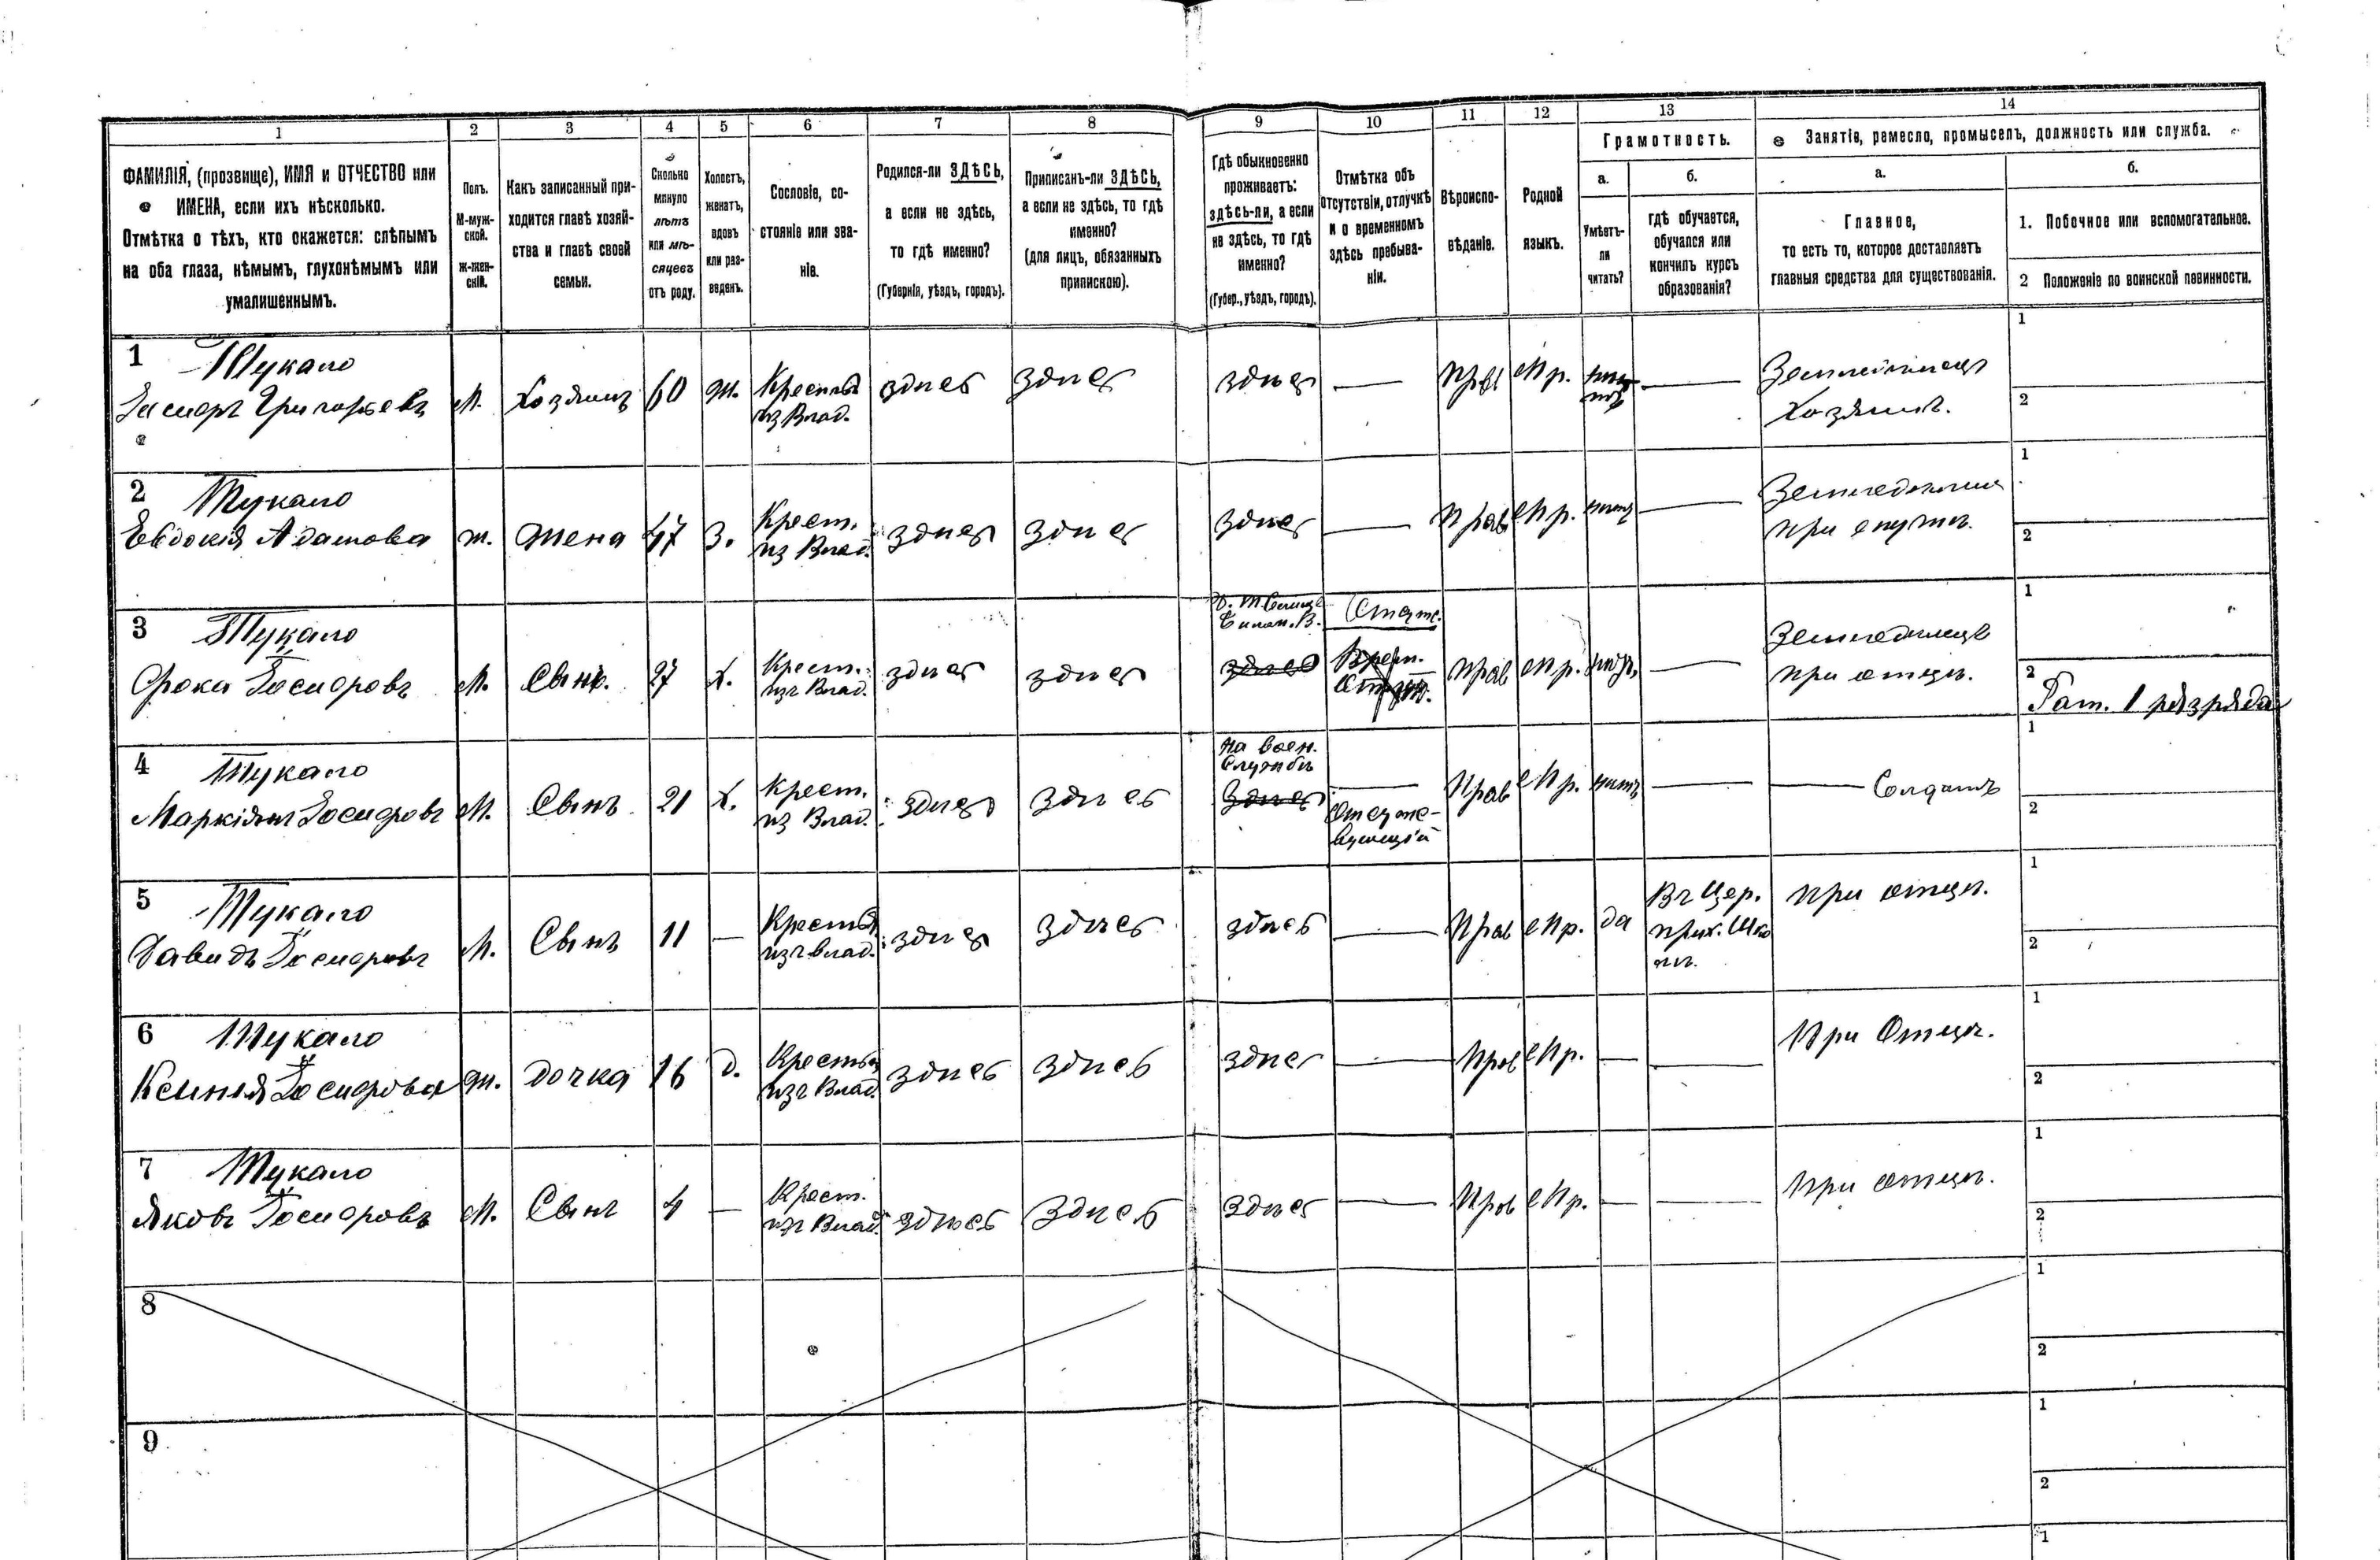 1 2 3 4 5 6 7 8 9 10 11 12 13 14
ФАМИЛІЯ, (прозвище), ИМЯ и ОТЧЕСТВО или
ИМЕНА, если ихъ нѣсколько.
Отмѣтка о тѣхъ, кто окажется: слѣпымъ
на оба глаза, нѣмымъ, глухонѣмымъ или
умалишеннымъ.
Полъ.
М-муж-
ской.
Ж-жен-
скій.
Какъ записанный при-
ходится главѣ хозяй-
ства и главѣ своей
семьи.
Сколько
минуло
лѣтъ
или мѣ-
сяцевъ
отъ роду.
Холостъ,
женатъ,
вдовъ
или раз-
веденъ.
Сословіе, со-
стояніе или зва-
ніе.
Родился-ли ЗДѢСЬ,
а если не здѣсь,
то гдѣ именно?
(Губернія, уѣздъ, городъ).
Приписанъ-ли ЗДѢСЬ,
а если не здѣсь, то гдѣ
именно?
(для лицъ, обязанныхъ
припискою).
Гдѣ обыкновенно
проживаетъ:
здѣсь-ли, а если
не здѣсь, то гдѣ
именно?
(Губер., уѣздъ, городъ).
Отмѣтка объ
отсутствіи, отлучкѣ
и о временномъ
здѣсь пребыва-
ніи.
Вѣроиспо-
вѣданіе.
Родной
языкъ.
Грамотность.
а.
Умѣетъ-
ли
читать?
б.
гдѣ обучается,
обучался или
кончилъ курсъ
образованія?
Занятіе, ремесло, промыселъ, должность или служба.
а.
Главное,
то есть то, которое доставляетъ
главныя средства для существованія.
б.
1. Побочное или вспомогательное.
2 Положеніе по воинской повинности.
1 Тукало
Іосифъ Григорьевъ М. Хозяинъ 60 Ж. Крестья изъ Влад. здпсь здпсь здпсь — Прав Мр. нптъ —
Хозяинъ.
1
2
2 Тукало
Евдокія Адамова ж. жена 47 З. Крест. из Влад. здпсь здпсь здпсь — Прав Мр. —
при
1
2
3 Тукало
Фока Іосифовъ М. Сынъ. 27 Х. Крест. изъ Влад. здпсь здпсь здпсь Прав Мр. —
Земледелецъ
при отцп.
1
2
Рат. 1 разряда
4 Тукало
Маркіянъ Іосифовъ М. Сынъ 21 Х. Крест. из Влад. здпсь здпсь
На воен.
Службп
здпсь
—
Отсутс-
вующій
Прав Мр. нптъ — — Солдатъ
1
2
5 Тукало
Давидъ Іосифовъ М. Сынъ 11 — Крестья изъ влад. здпсь здпсь здпсь — Прав Мр. да
Въ Цер.
прих. Шко
лп.
при отцп.
1
2
6 Тукало
Ксинія Іосифова ж. дочка 16 д. Крестья изъ Влад. здпсь здпсь здпсь — Прав Мр. — — При Отцп.
1
2
7 Тукало
Яковъ Іосифовъ М. Сынъ 4 — Крест. изъ Влад. здпсь Здпсь Здпсь — Прав Мр. — — при отцп.
1
2
8
1
2
9
1
2
1